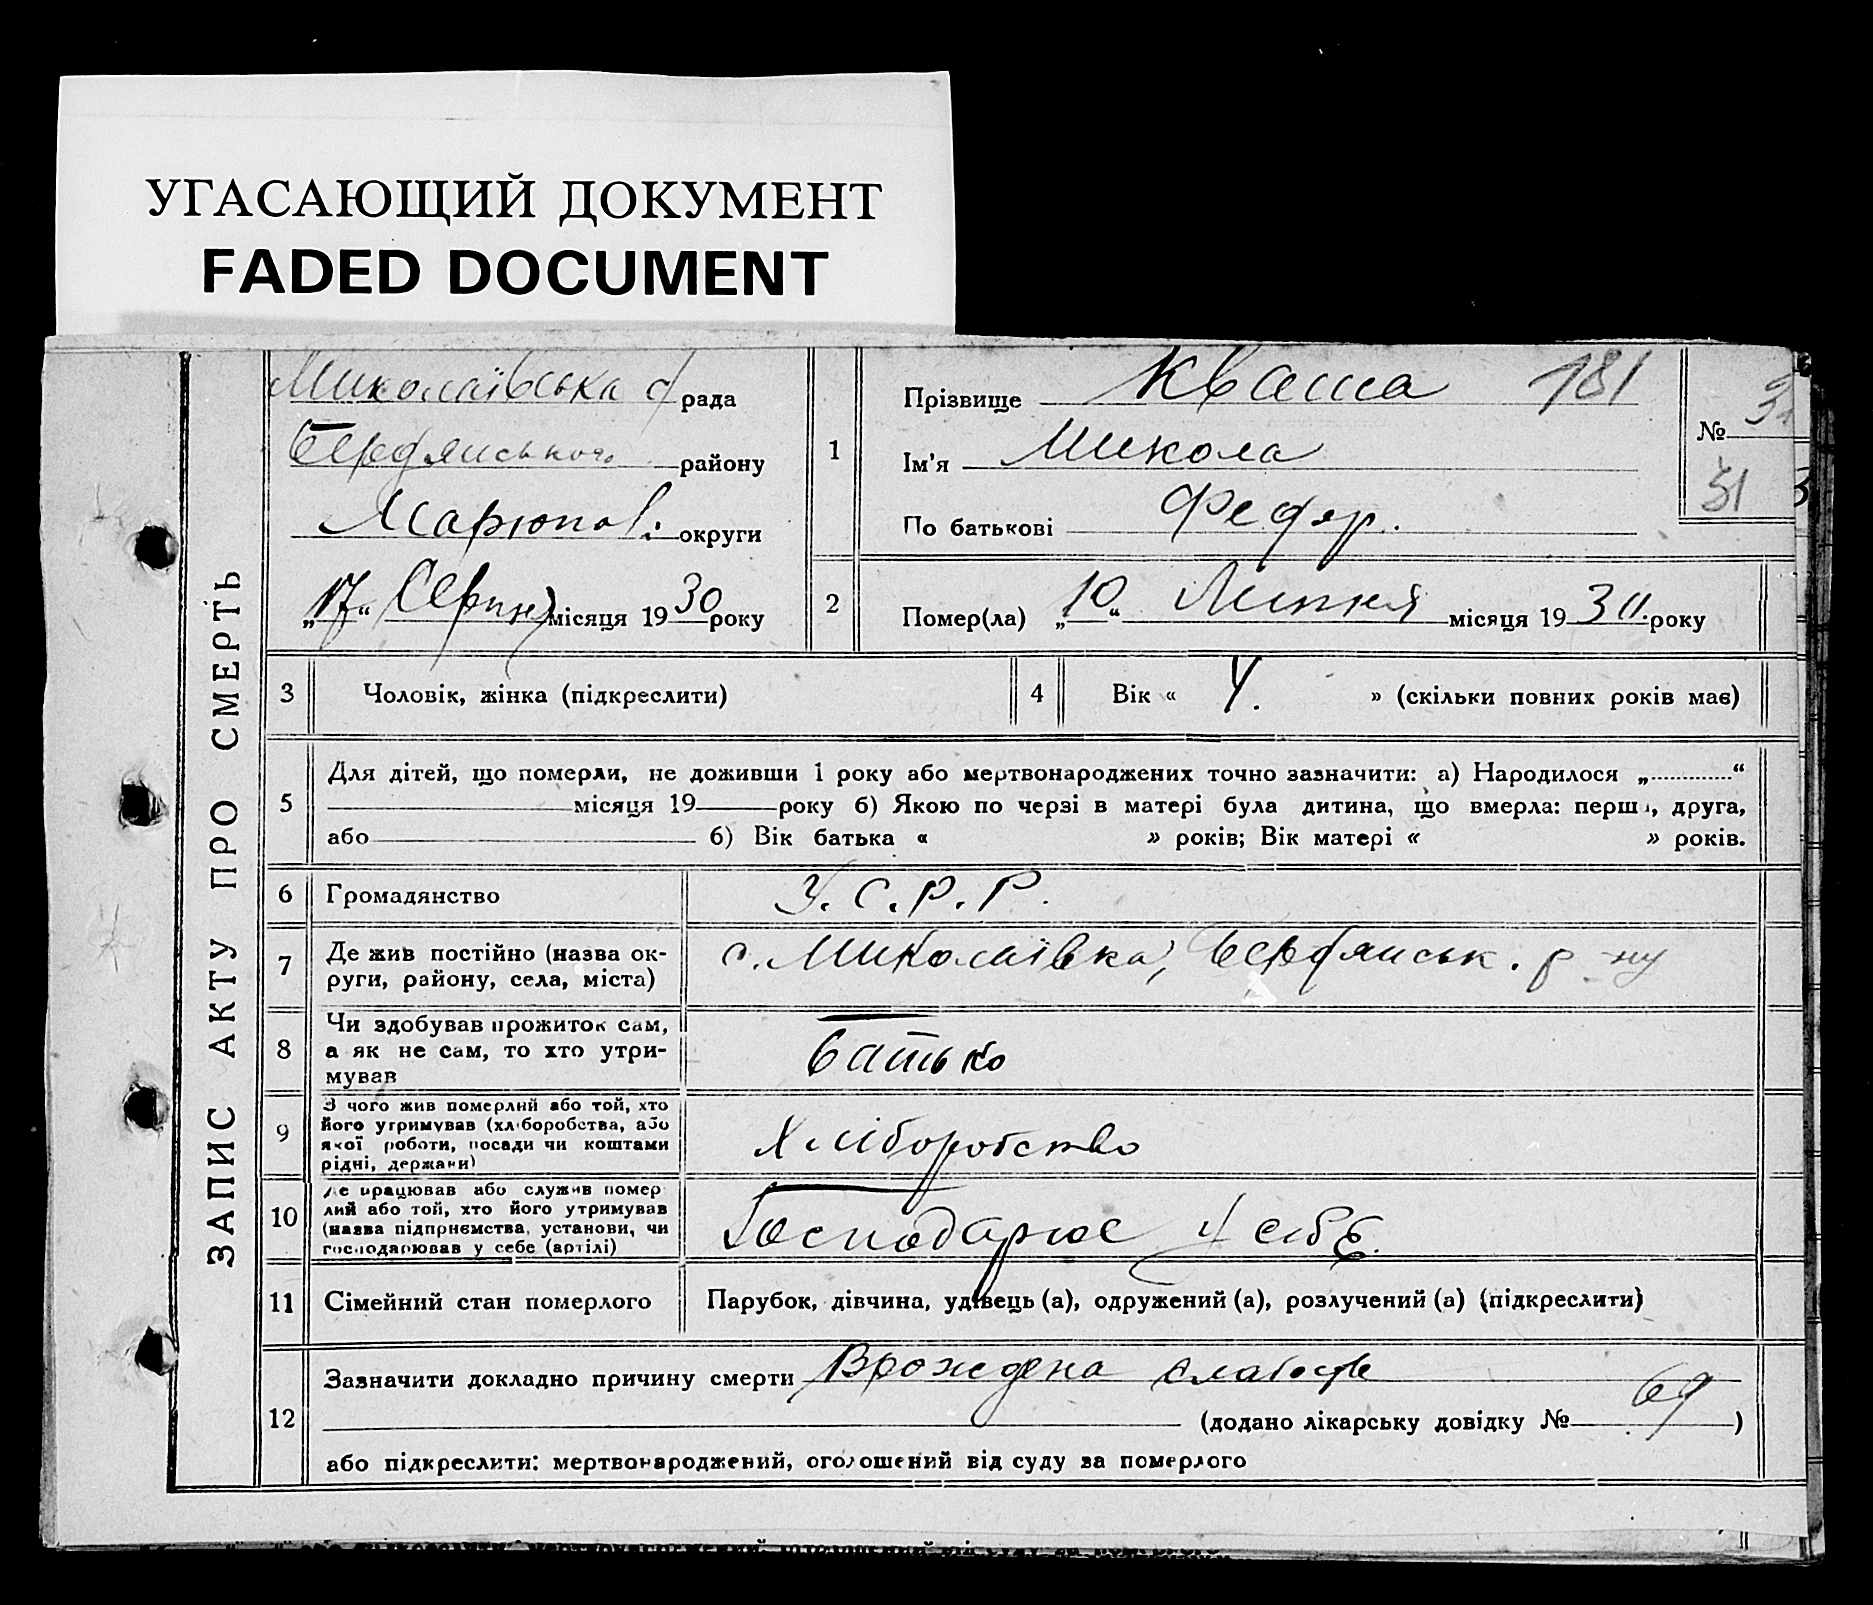 УГАСАЮЩИЙ ДОКУМЕНТ
FADED DOCUMENT
ЗАПИС АКТУ ПРО СМЕРТЬ
Миколаївська с/ рада
Бердянського району
Маріюпов. округи
„17“ Серпня місяця 1930 року
1
Прізвище Кваша 181
Ім'я Микола
По батькові Федор.
№ 31
31
2
Помер(ла) „10“ Липня місяця 1930. року
3 Чоловік, жінка (підкреслити)
4 Вік « У. » (скільки повних років має)
5
Для дітей, що померли, не доживши 1 року або мертвонароджених точно зазначити: а) Народилося „............“
місяця 19 року б) Якою по черзі в матері була дитина, що вмерла: перша, друга,
або б) Вік батька « » років; Вік матері « » років.
6 Громадянство У.С.Р.Р.
7 Де жив постійно (назва ок-
руги, району, села, міста)
с. Миколаївка, Бердянськ. р-ну
8 Чи здобував прожиток сам,
а як не сам, то хто утри-
мував
батько
9 З чого жив померлий або той, хто
його утримував (хліборобства, або
якої роботи, посади чи коштами
рідні, держави)
Хліборобство
10 Де працював або служив помер
лий або той, хто його утримував
(назва підприємства, установи, чи
господарював у себе (артілі)
Господарює у себе.
11 Сімейний стан померлого
Парубок, дівчина, удівець (а), одружений (а), розлучений (а) (підкреслити)
12
Зазначити докладно причину смерти Врождена слабость
(додано лікарську довідку № 69 )
або підкреслити: мертвонароджений, оголошений від суду за померлого